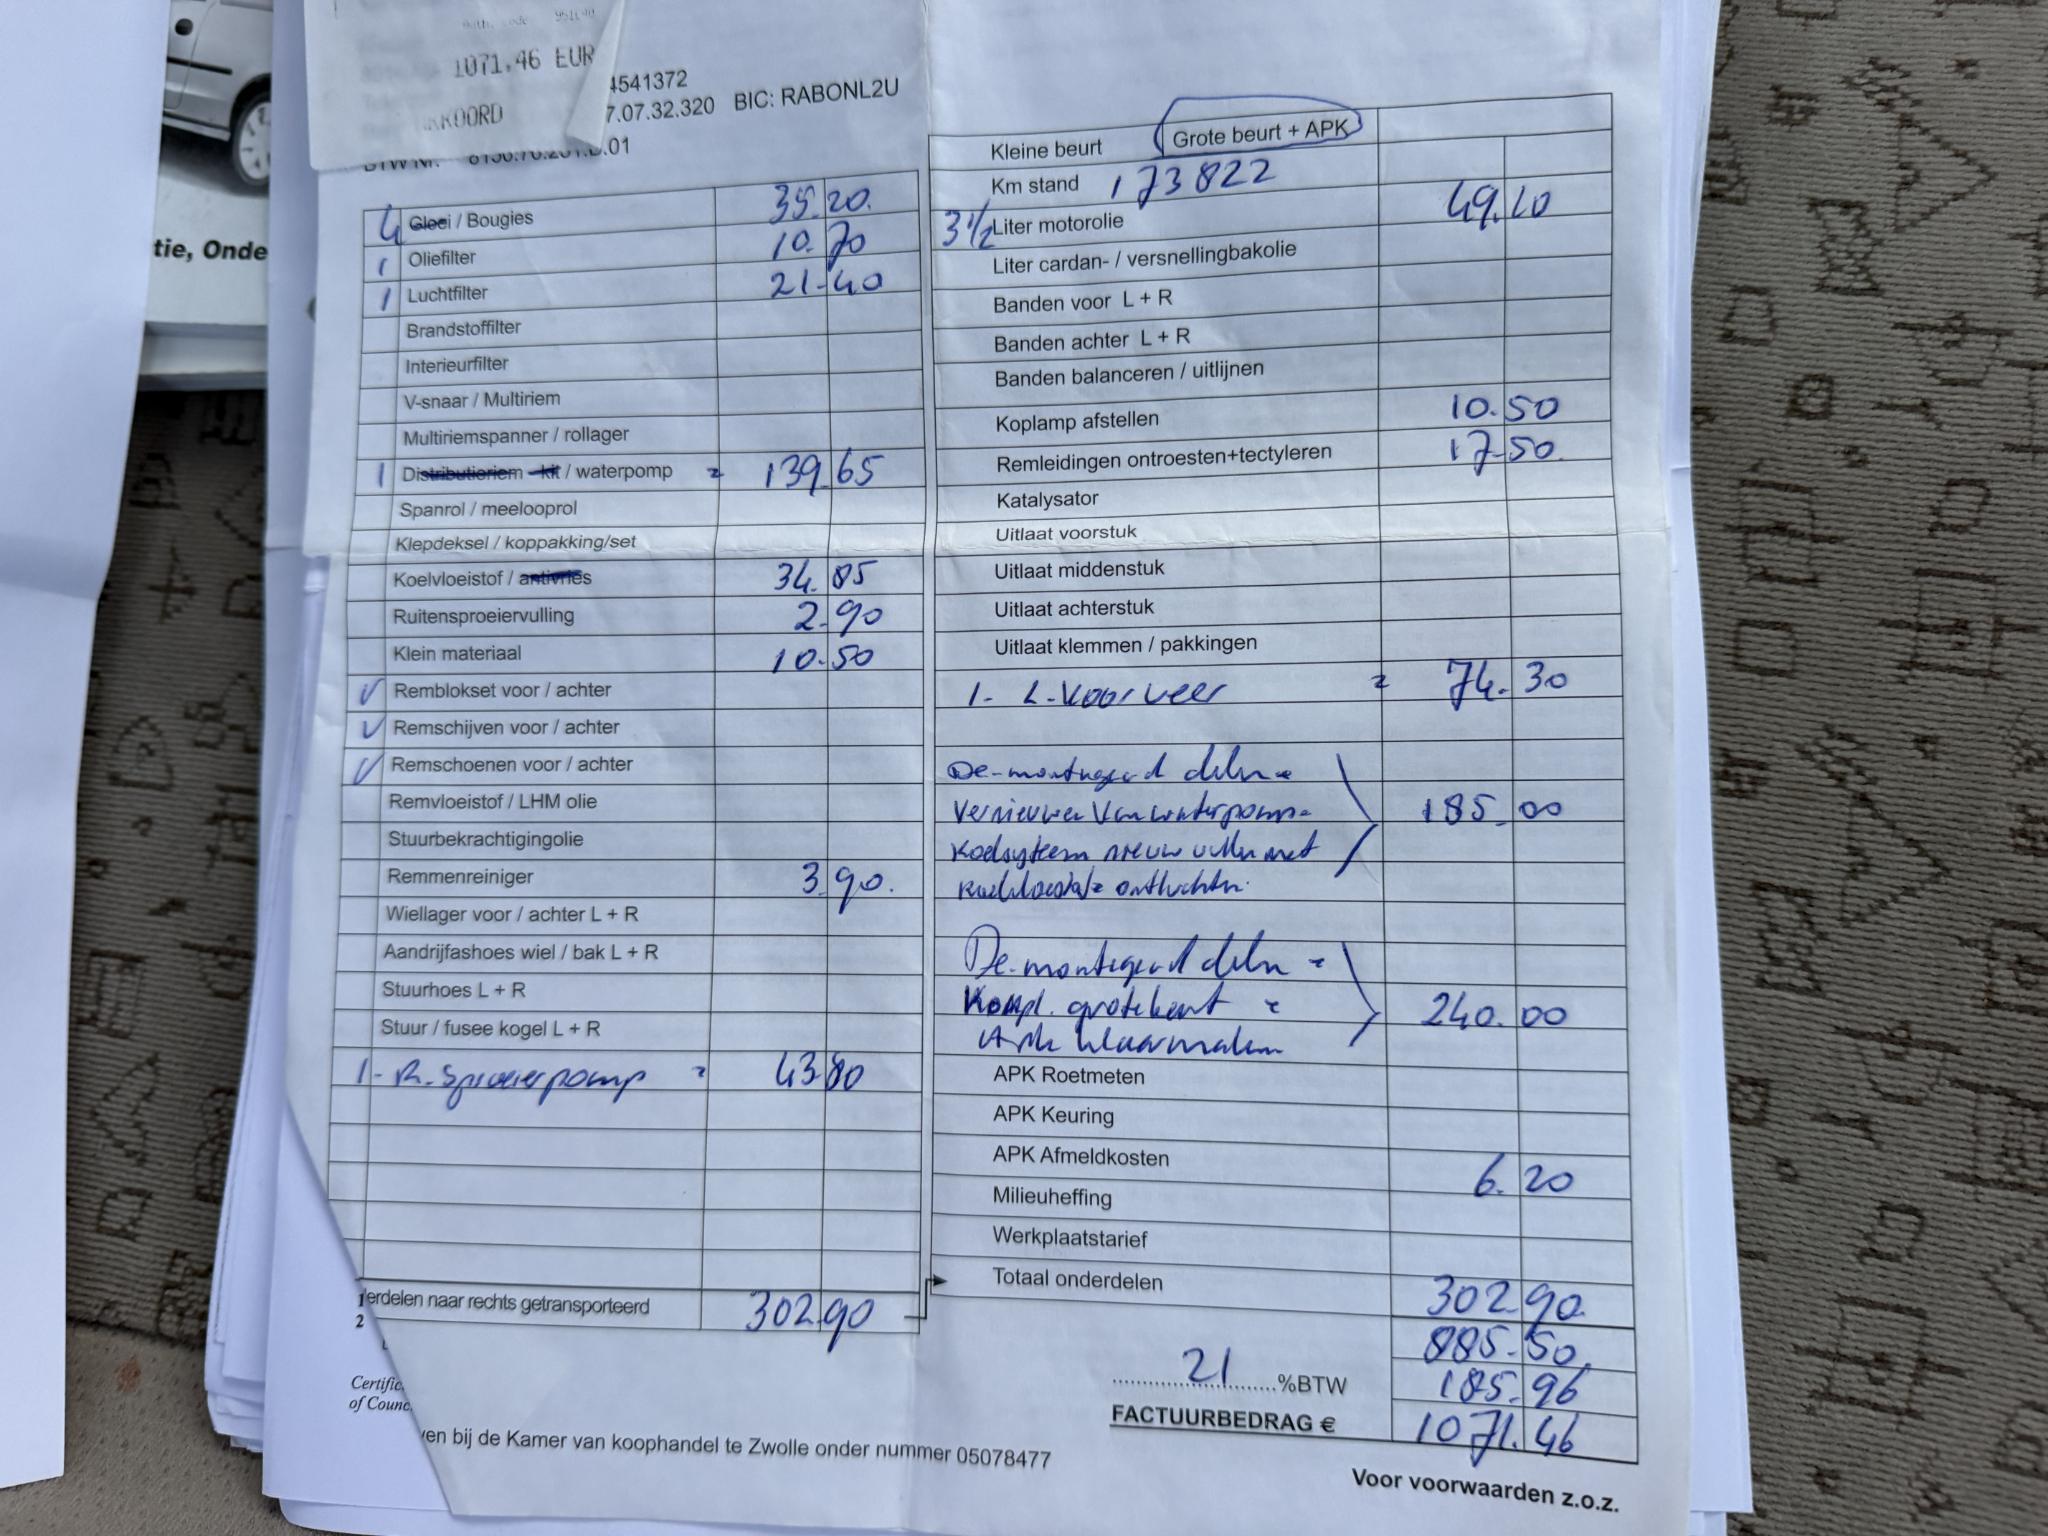 1071,46 EUR
4541372
7.07.32.320 BIC: RABONL2U
tie, Onde
4 Gloei / Bougies 35.20.
1 Oliefilter 10.70
1 Luchtfilter 21.40
Brandstoffilter
Interieurfilter
V-snaar / Multiriem
Multiriemspanner / rollager
1 Distributieriem -kit / waterpomp = 139.65
Spanrol / meelooprol
Klepdeksel / koppakking/set
Koelvloeistof / antivries 34.85
Ruitensproeiervulling 2.90
Klein materiaal 10.50
V Remblokset voor / achter
V Remschijven voor / achter
V Remschoenen voor / achter
Remvloeistof / LHM olie
Stuurbekrachtigingolie
Remmenreiniger 3.90.
Wiellager voor / achter L + R
Aandrijfashoes wiel / bak L + R
Stuurhoes L + R
Stuur / fusee kogel L + R
1- R. Sproeierpomp = 43.80
erdelen naar rechts getransporteerd 302.90
1
2
Certific
of Counc
ven bij de Kamer van koophandel te Zwolle onder nummer 05078477
Kleine beurt Grote beurt + APK
Km stand 173822
3 1/2 Liter motorolie 49.10
Liter cardan- / versnellingbakolie
Banden voor L + R
Banden achter L + R
Banden balanceren / uitlijnen
Koplamp afstellen 10.50
Remleidingen ontroesten+tectyleren 17.50
Katalysator
Uitlaat voorstuk
Uitlaat middenstuk
Uitlaat achterstuk
Uitlaat klemmen / pakkingen
1- L-Voorveer = 74.30
De-montageard delen
vernieuwen van waterpomp 185.00
koelsysteem nieuw vullen met
koelvloeistof ontluchten.
De-montageard delen
Kompl. grotebeurt 240.00
Apk klaarmaken
APK Roetmeten
APK Keuring
APK Afmeldkosten 6.20
Milieuheffing
Werkplaatstarief
Totaal onderdelen 302.90
885.50
21 %BTW 185.96
FACTUURBEDRAG € 1071.46
Voor voorwaarden z.o.z.